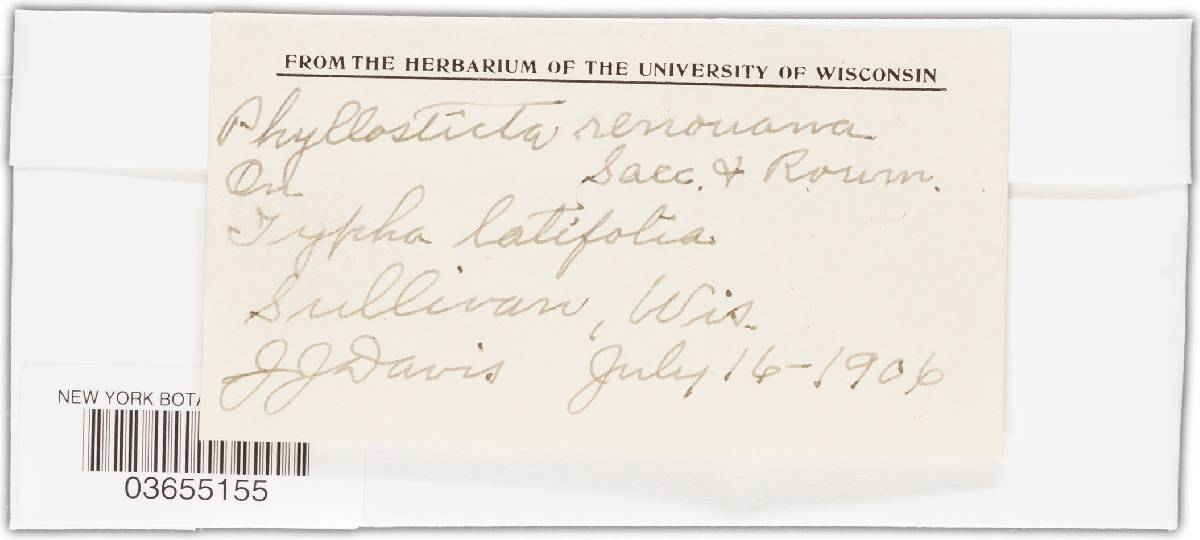 FROM THE HERBARIUM OF THE UNIVERSITY OF WISCONSIN
Phyllosticta renouana
Sacc. & Roum.
On
Typha latifolia
Sullivan, Wis.
J J Davis July 16-1906
NEW YORK BOTA
03655155